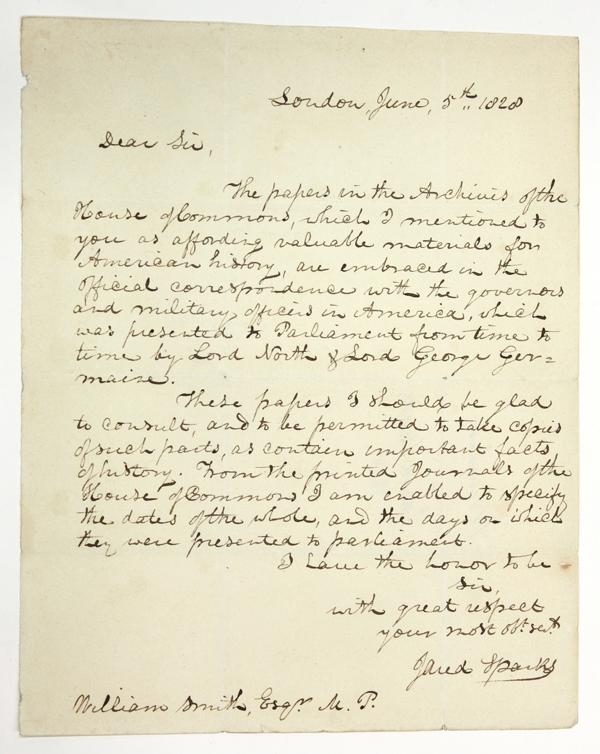 London, June, 5th. 1828
Dear Sir,
The papers in the Archives of the
House of Commons, which I mentioned to
you as affording valuable materials for
American history, are embraced in the
official correspondence with the governors
and military officers in America, which
was presented to Parliament from time to
time by Lord North & Lord George Ger=
maine.
These papers I should be glad
to consult, and to be permitted to take copies
of such parts, as contain important facts
of history. From the printed Journals of the
House of Commons I am enabled to specify
the dates of the whole, and the days on which
they were presented to parliament.
I have the honor to be
Sir,
with great respect
your most obt. sert.
Jared Sparks
William Smith, Esqr. M. P.